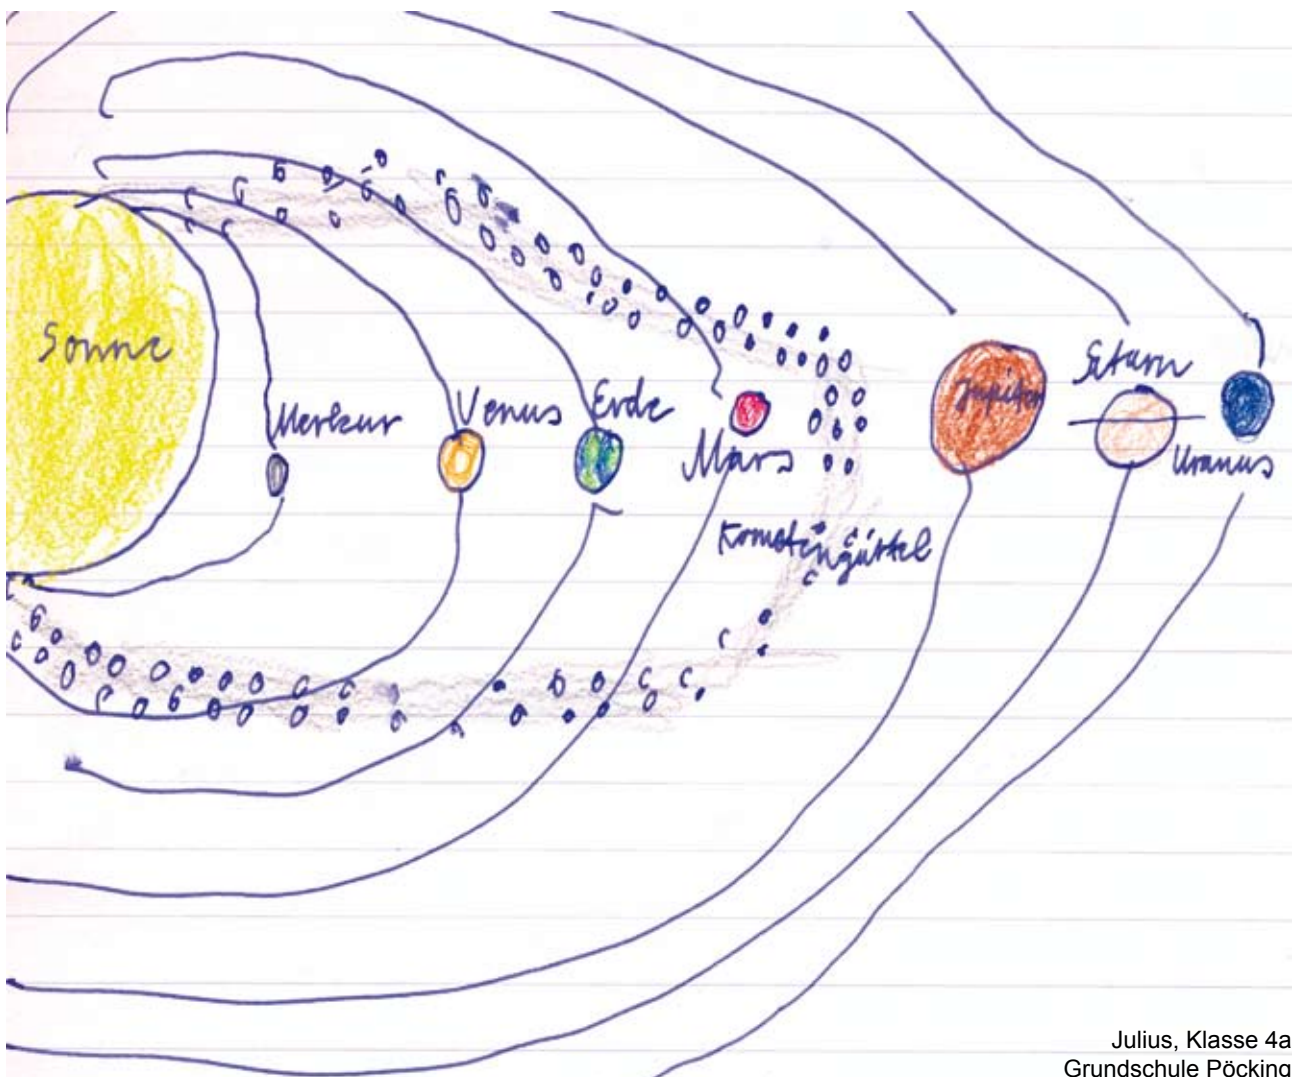 Sonne
Merkur
Venus
Erde
Mars
Kometengürtel
Jupiter
Saturn
Uranus
Julius, Klasse 4a
Grundschule Pöcking